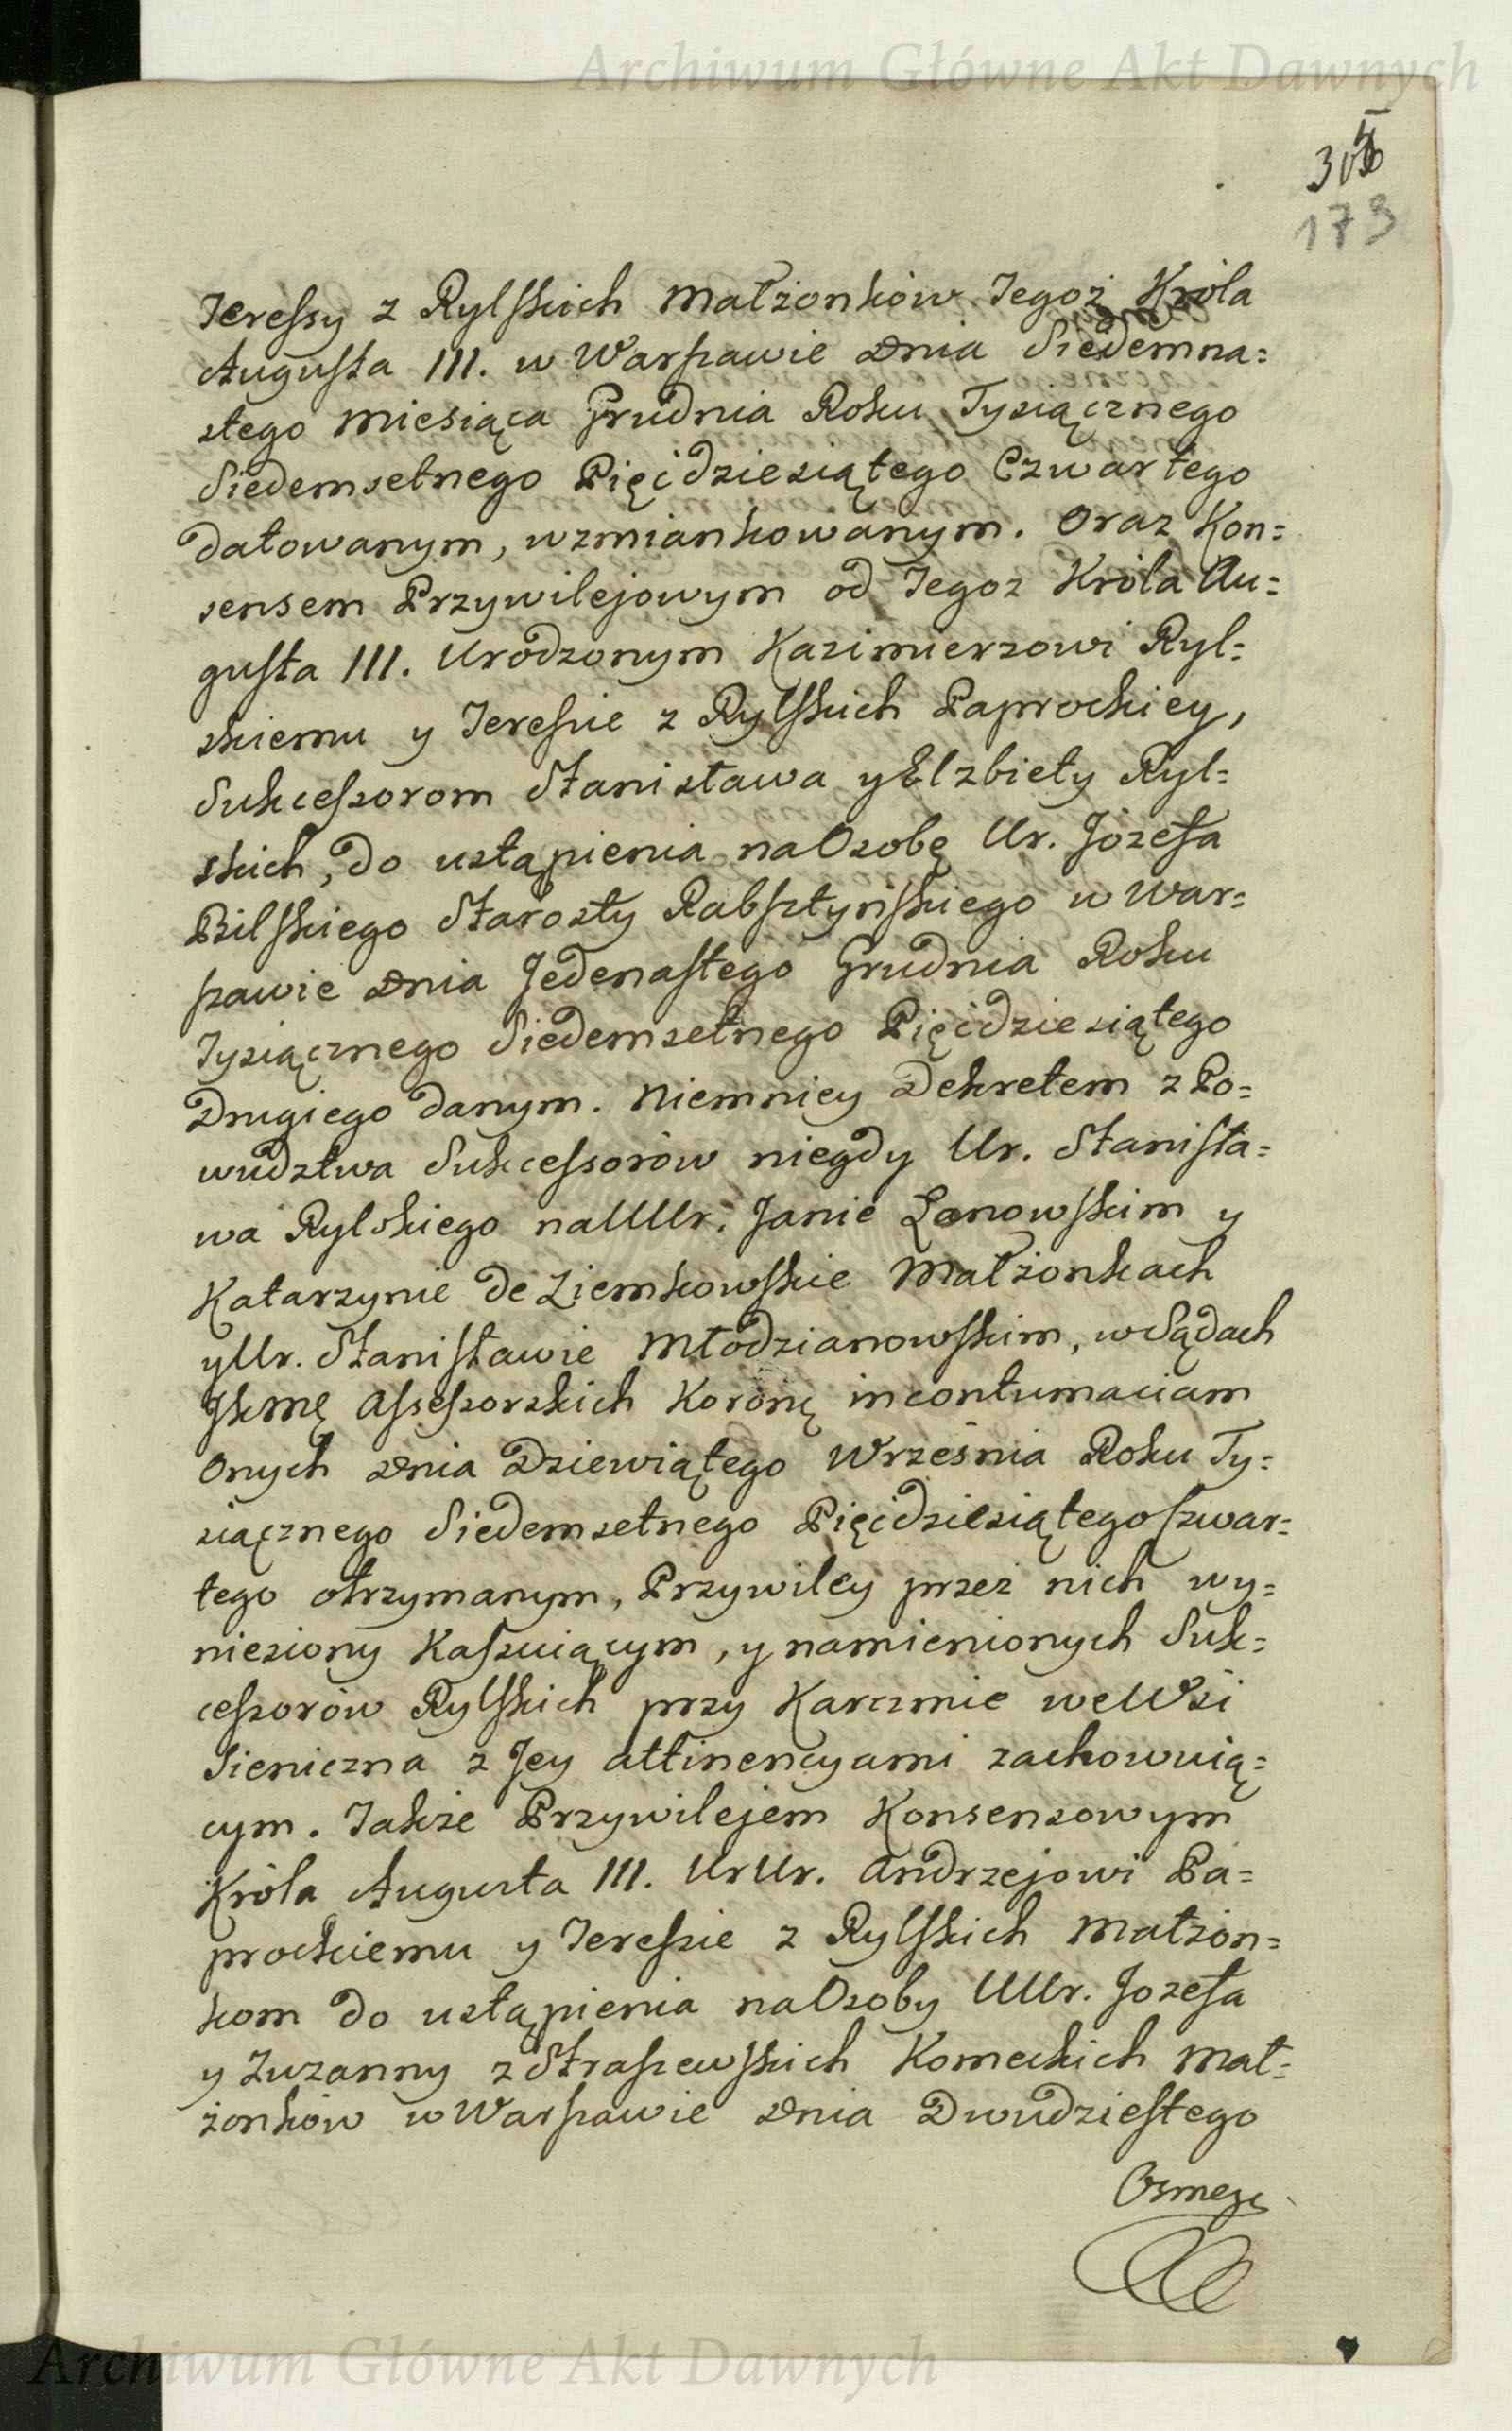 Archiwum Główne Akt Dawnych
173
Teressy z Rylskich Małżonków Tegoż Króla
Augusta III. w Warszawie Dnia Siedemna=
stego Miesiąca Grudnia Roku Tysiącznego
Siedemsetnego Pięćdziesiątego Czwartego
datowanym, wzmiankowanym. Oraz Kon=
sensem Przywilejowym od Tegoz Króla Au=
gusta III. Urodzonym Kazimierzowi Ryl=
skiemu y Teressie z Rylskich Paprockiey,
Sukcessorom Stanisława y Elzbiety Ryl=
skich, do ustąpienia na Osobę Ur. Józefa
Bilskiego Starosty Rabsztyńskiego w War=
szawie Dnia Jedenastego Grudnia Roku
Tysiącznego Siedemsetnego Pięćdziesiątego
Drugiego danym. Niemniey Dekretem z Po=
wudztwa Sukcessorów niegdy Ur. Stanisła=
wa Rylskiego na UUr. Janie Łanowskim y
Katarzynie de Ziemkowskie Małżonkach
y Ur. Stanisławie Młodzianowskim, w Sądach
JKMę Assessorskich Koronę in contumaciam
Onych Dnia Dziewiątego Września Roku Ty=
siącznego Siedemsetnego Pięćdziesiątego Czwar=
tego otrzymanym, Przywiley przez nich wy=
niesiony Kassuiącym, y namienionych Suk=
cessorów Rylskich przy Karczmie we Wsi
Sieniczna z Jey attinencyami zachowuią=
cym. Także Przywilejem Konsensowym
Króla Augusta III. UrUr. Andrzejowi Pa=
prockiemu y Teressie z Rylskich Małżon=
kom do ustąpienia na Osoby UUr. Jozefa
y Zuzanny z Straszewskich Komeckich Mał=
żonków w Warszawie Dnia Dwudziestego
Osmego
Archiwum Główne Akt Dawnych